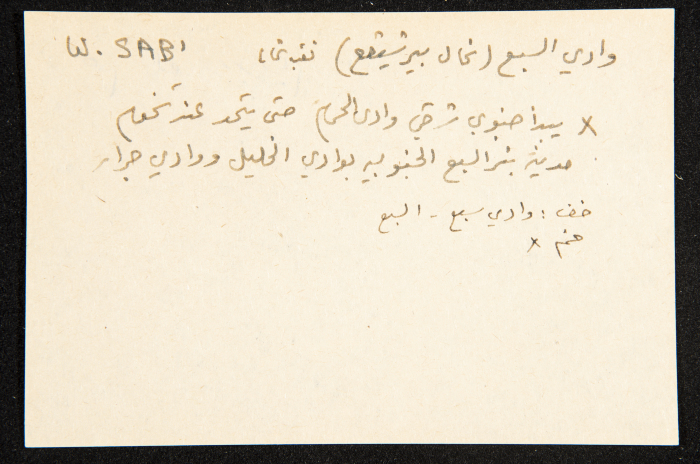 وادي السبع (نحال بير شيبع) نقب شمالي W. SABI
x يبدأ جنوبي شرقي وادي الحمام حتى يتحد عند تخوم
مدينة بئر السبع الجنوبيه بوادي الخليل ووادي جرار
خفف : وادي سبع - السبع
x